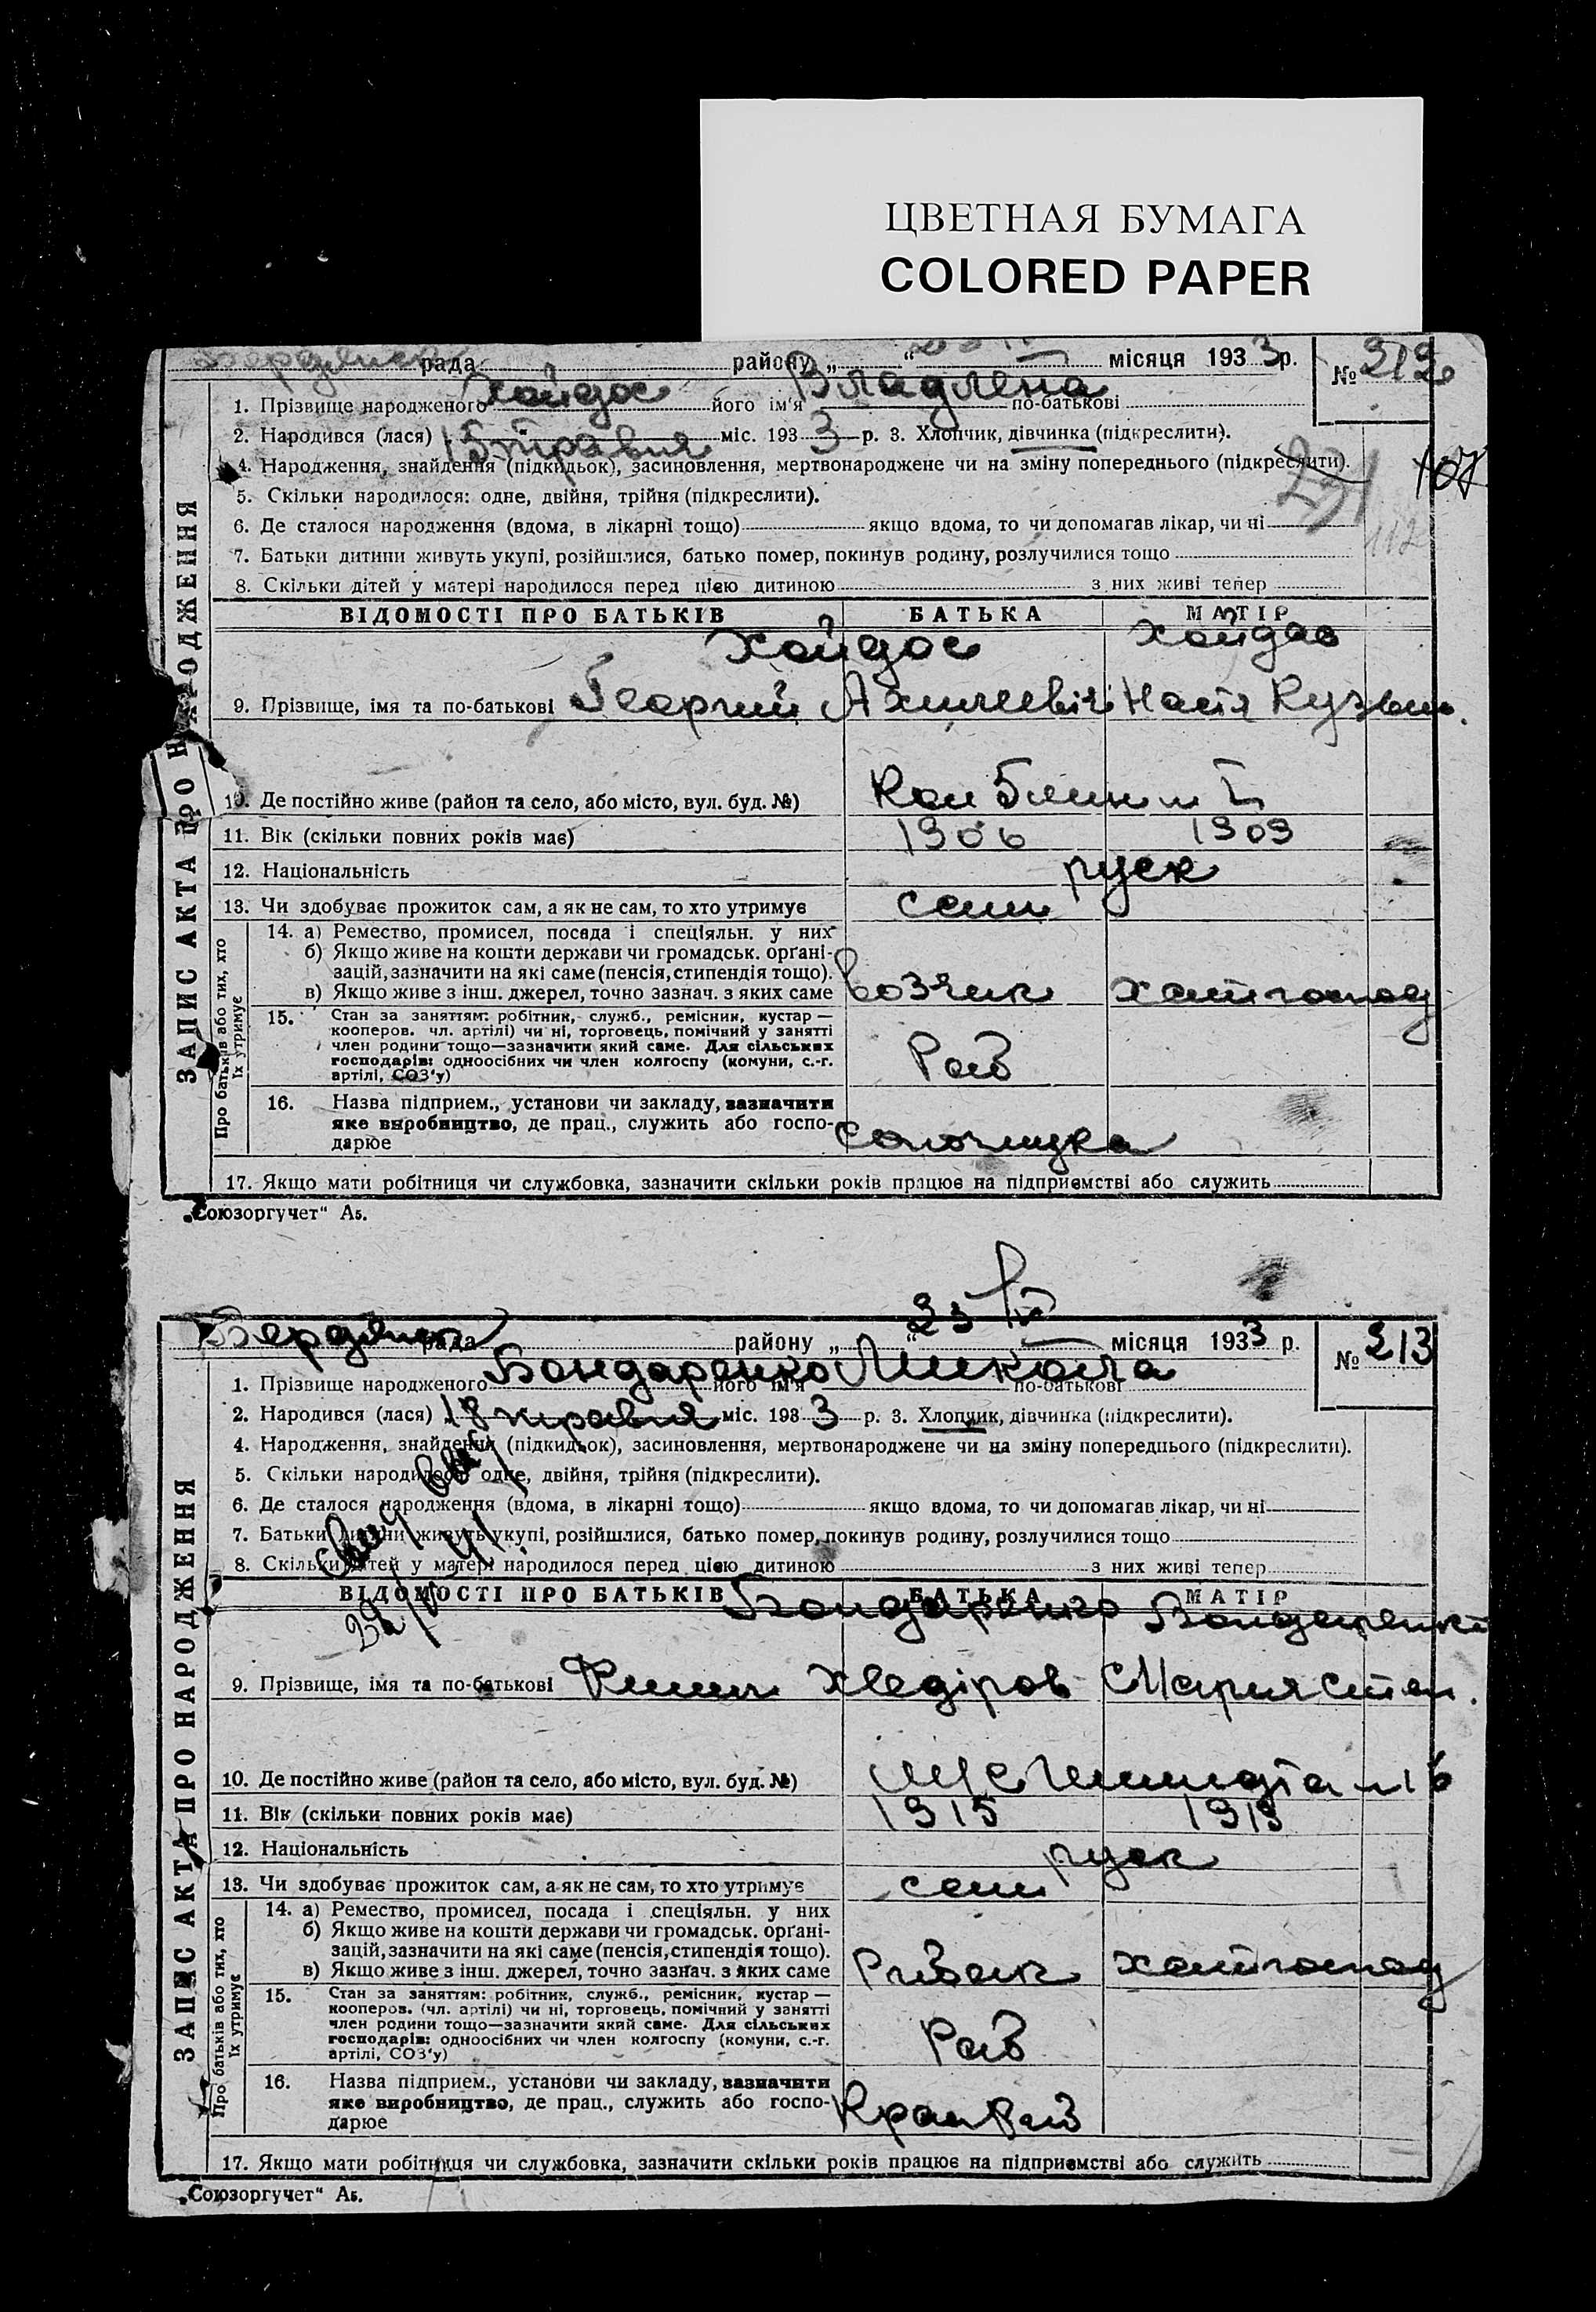 ЦВЕТНАЯ БУМАГА
COLORED PAPER
рада району „ “ місяця 193 3 р. № 212
1. Прізвище народженого Хайдос його ім'я Владлена по-батькові
2. Народився (лася) 15 травня міс. 193 3 р. 3. Хлопчик, дівчинка (підкреслити).
4. Народження, знайдення (підкидьок), засиновлення, мертвонароджене чи на зміну попереднього (підкреслити).
107
231
5. Скільки народилося: одне, двійня, трійня (підкреслити).
6. Де сталося народження (вдома, в лікарні тощо) якщо вдома, то чи допомагав лікар, чи ні
112
7. Батьки дитини живуть укупі, розійшлися, батько помер, покинув родину, розлучилися тощо
8. Скільки дітей у матері народилося перед цією дитиною з них живі тепер
ЗАПИС АКТА ПРО НАРОДЖЕННЯ
ВІДОМОСТІ ПРО БАТЬКІВ БАТЬКА МАТІР
Хайдос Хайдос
9. Прізвище, імя та по-батькові Георгий Настя Кузьм.
10. Де постійно живе (район та село, або місто, вул. буд. №)
11. Вік (скільки повних років має) 1906 1909
12. Національність руск
13. Чи здобуває прожиток сам, а як не сам, то хто утримує сам
Про батьків або тих, хто їх утримує
14. а) Ремество, промисел, посада і спеціяльн. у них
б) Якщо живе на кошти держави чи громадськ. орґані-
зацій, зазначити на які саме (пенсія, стипендія тощо).
в) Якщо живе з інш. джерел, точно зазнач. з яких саме возчик хатнгоспод
15. Стан за заняттям: робітник, служб., ремісник, кустар —
кооперов. чл. артілі) чи ні, торговець, помічний у занятті
член родини тощо—зазначити який саме. Для сільських
господарів: одноосібних чи член колгоспу (комуни, с.-г.
артілі, СОЗ'у) Роб
16. Назва підприєм., установи чи закладу, зазначити
яке виробництво, де прац., служить або госпо-
дарює
17. Якщо мати робітниця чи службовка, зазначити скільки років працює на підприємстві або служить
„Союзоргучет“ А5.
Бердянск рада району „ 23 “ місяця 193 3 р. № 213
1. Прізвище народженого Бондаренко його ім'я Микола по-батькові
2. Народився (лася) 18 травня міс. 193 3 р. 3. Хлопчик, дівчинка (підкреслити).
4. Народження, знайдення (підкидьок), засиновлення, мертвонароджене чи на зміну попереднього (підкреслити).
5. Скільки народилося: одне, двійня, трійня (підкреслити).
6. Де сталося народження (вдома, в лікарні тощо) якщо вдома, то чи допомагав лікар, чи ні
7. Батьки дитини живуть укупі, розійшлися, батько помер, покинув родину, розлучилися тощо
8. Скільки дітей у матері народилося перед цією дитиною з них живі тепер
ЗАПИС АКТА ПРО НАРОДЖЕННЯ
ВІДОМОСТІ ПРО БАТЬКІВ БАТЬКА МАТІР
Бондаренко Бондаренко
9. Прізвище, імя та по-батькові Хведіров Мария Степ.
10. Де постійно живе (район та село, або місто, вул. буд. №) 16
11. Вік (скільки повних років має) 1915 1913
12. Національність руск
13. Чи здобуває прожиток сам, а як не сам, то хто утримує сам
Про батьків або тих, хто їх утримує
14. а) Ремество, промисел, посада і спеціяльн. у них
б) Якщо живе на кошти держави чи громадськ. орґані-
зацій, зазначити на які саме (пенсія, стипендія тощо).
в) Якщо живе з інш. джерел, точно зазнач. з яких саме Рибак хатнгоспод
15. Стан за заняттям: робітник, служб., ремісник, кустар —
кооперов. (чл. артілі) чи ні, торговець, помічний у занятті
член родини тощо—зазначити який саме. Для сільських
господарів: одноосібних чи член колгоспу (комуни, с.-г.
артілі, СОЗ'у) Роб
16. Назва підприєм., установи чи закладу, зазначити
яке виробництво, де прац., служить або госпо-
дарює
17. Якщо мати робітниця чи службовка, зазначити скільки років працює на підприємстві або служить
„Союзоргучет“ А5.